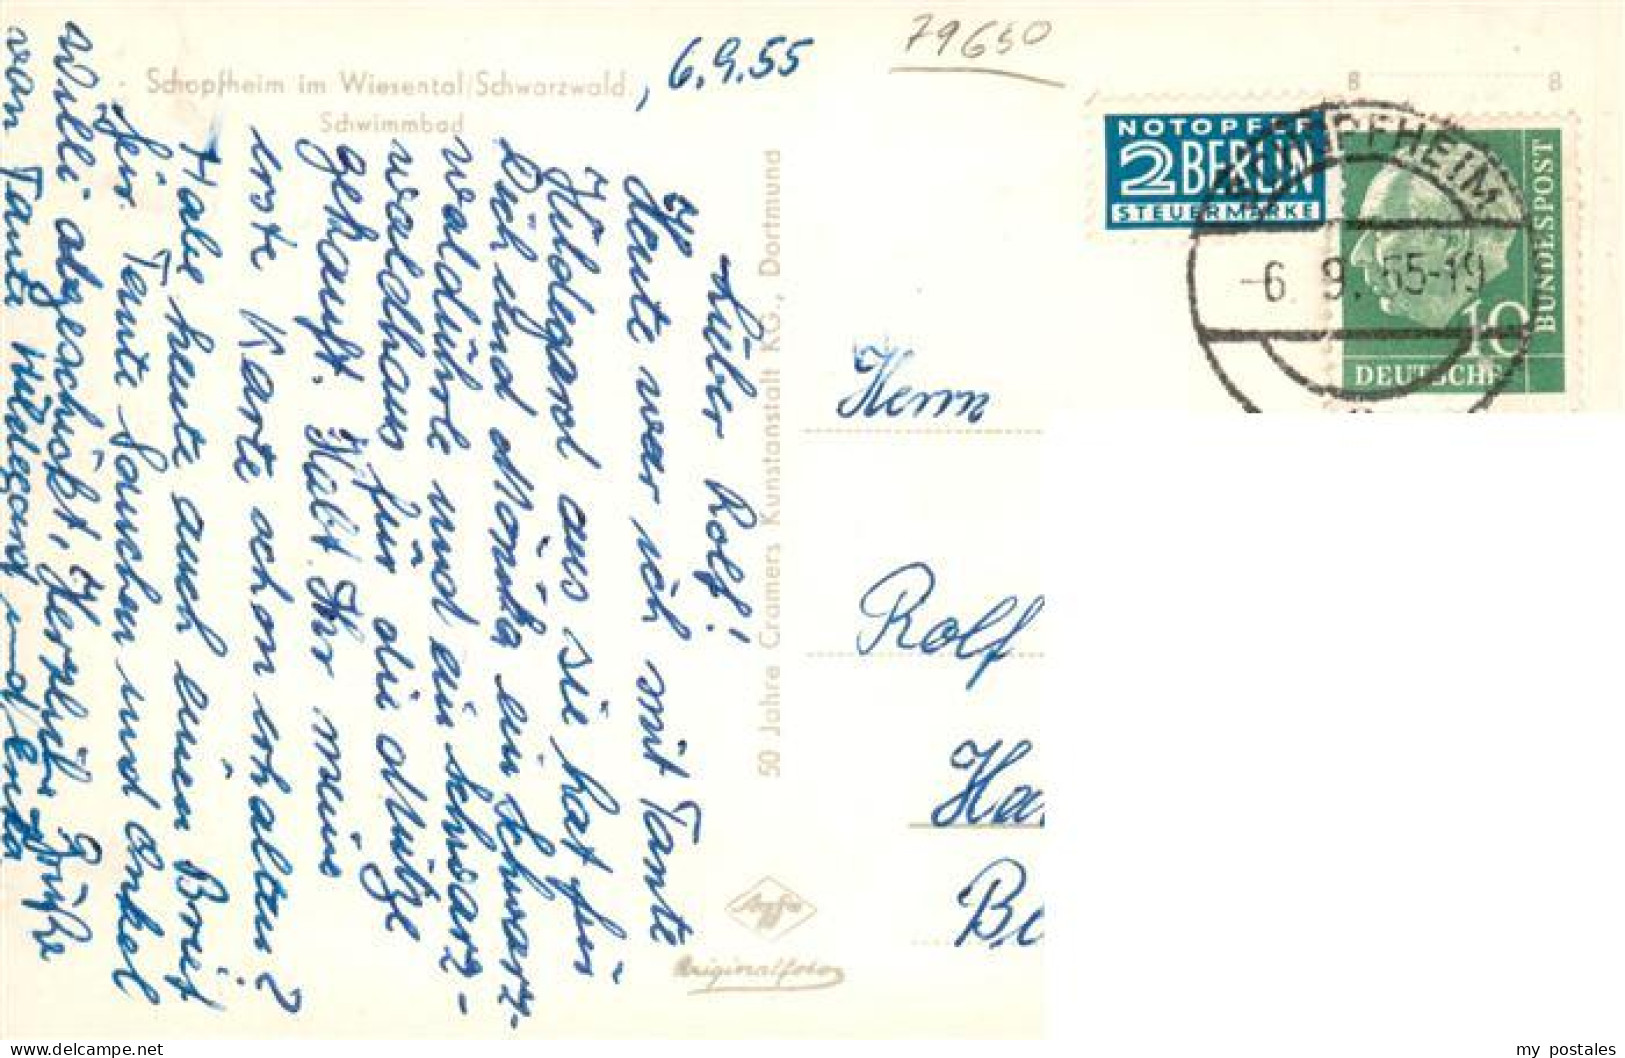 79650
Schopfheim im Wiesental/Schwarzwald.
Schwimmbad
, 6.9.55
Lieber Rolf!
Heute war ich mit Tante
Hildegard aus sie hat für
Dich und Monika ein Schwarz-
waldührle und ein schwarz-
waldhaus für die Mütze
gekauft. Habt Ihr meine
erste Karte schon erhalten?
Habe heute auch einen Brief
für Tante Sanchen und Onkel
Willi abgeschickt, Herzliche Grüße
von Tante Hildegard und
50 Jahre Cramers Kunstanstalt KG., Dortmund
Agfa
Originalfoto
8 8
NOTOPFER
2 BERLIN
STEUERMARKE
SCHOPFHEIM
-6. 9. 55-19
10
DEUTSCHE
BUNDESPOST
Herrn
Rolf
Ha
B
my postales